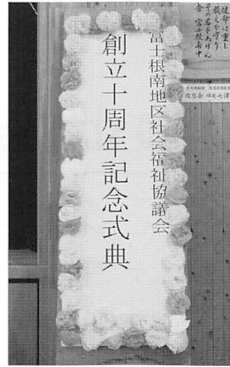 富士根南地区社会福祉協議会
創立十周年記念式典